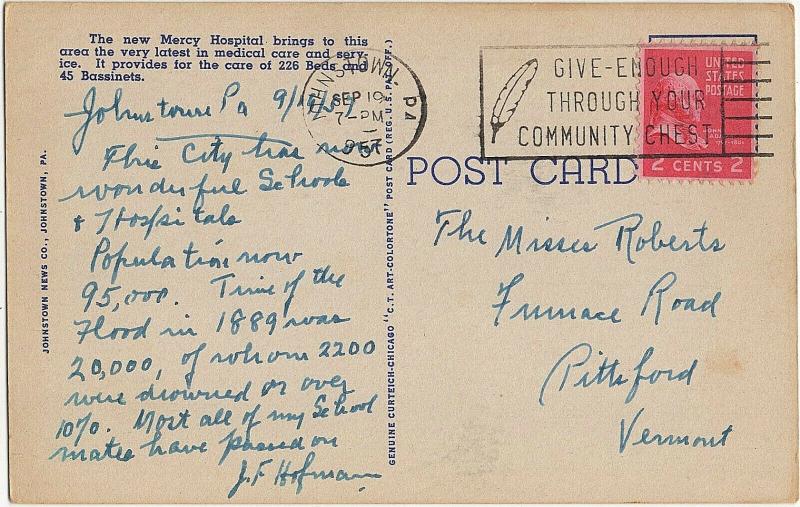 The new Mercy Hospital brings to this
area the very latest in medical care and serv-
ice. It provides for the care of 226 Beds and
45 Bassinets.
Johnstown Pa 9/19/57
This City has most
wonderful Schools
& Hospitals
Population now
95,000. Time of the
Flood in 1889 was
20,000, of whom 2200
were drowned or over
10%. Most all of my School
mates have passed on
J.F. Hofmann
JOHNSTOWN NEWS CO., JOHNSTOWN, PA.
GENUINE CURTEICH-CHICAGO "C.T. ART-COLORTONE" POST CARD (REG. U.S. PAT. OFF.)
JOHNSTOWN, PA
SEP 19
7-PM
GIVE-ENOUGH
THROUGH YOUR
COMMUNITY CHEST
UNITED
STATES
POSTAGE
JOHN
2 CENTS 2
POST CARD
The Misses Roberts
Furnace Road
Pittsford
Vermont